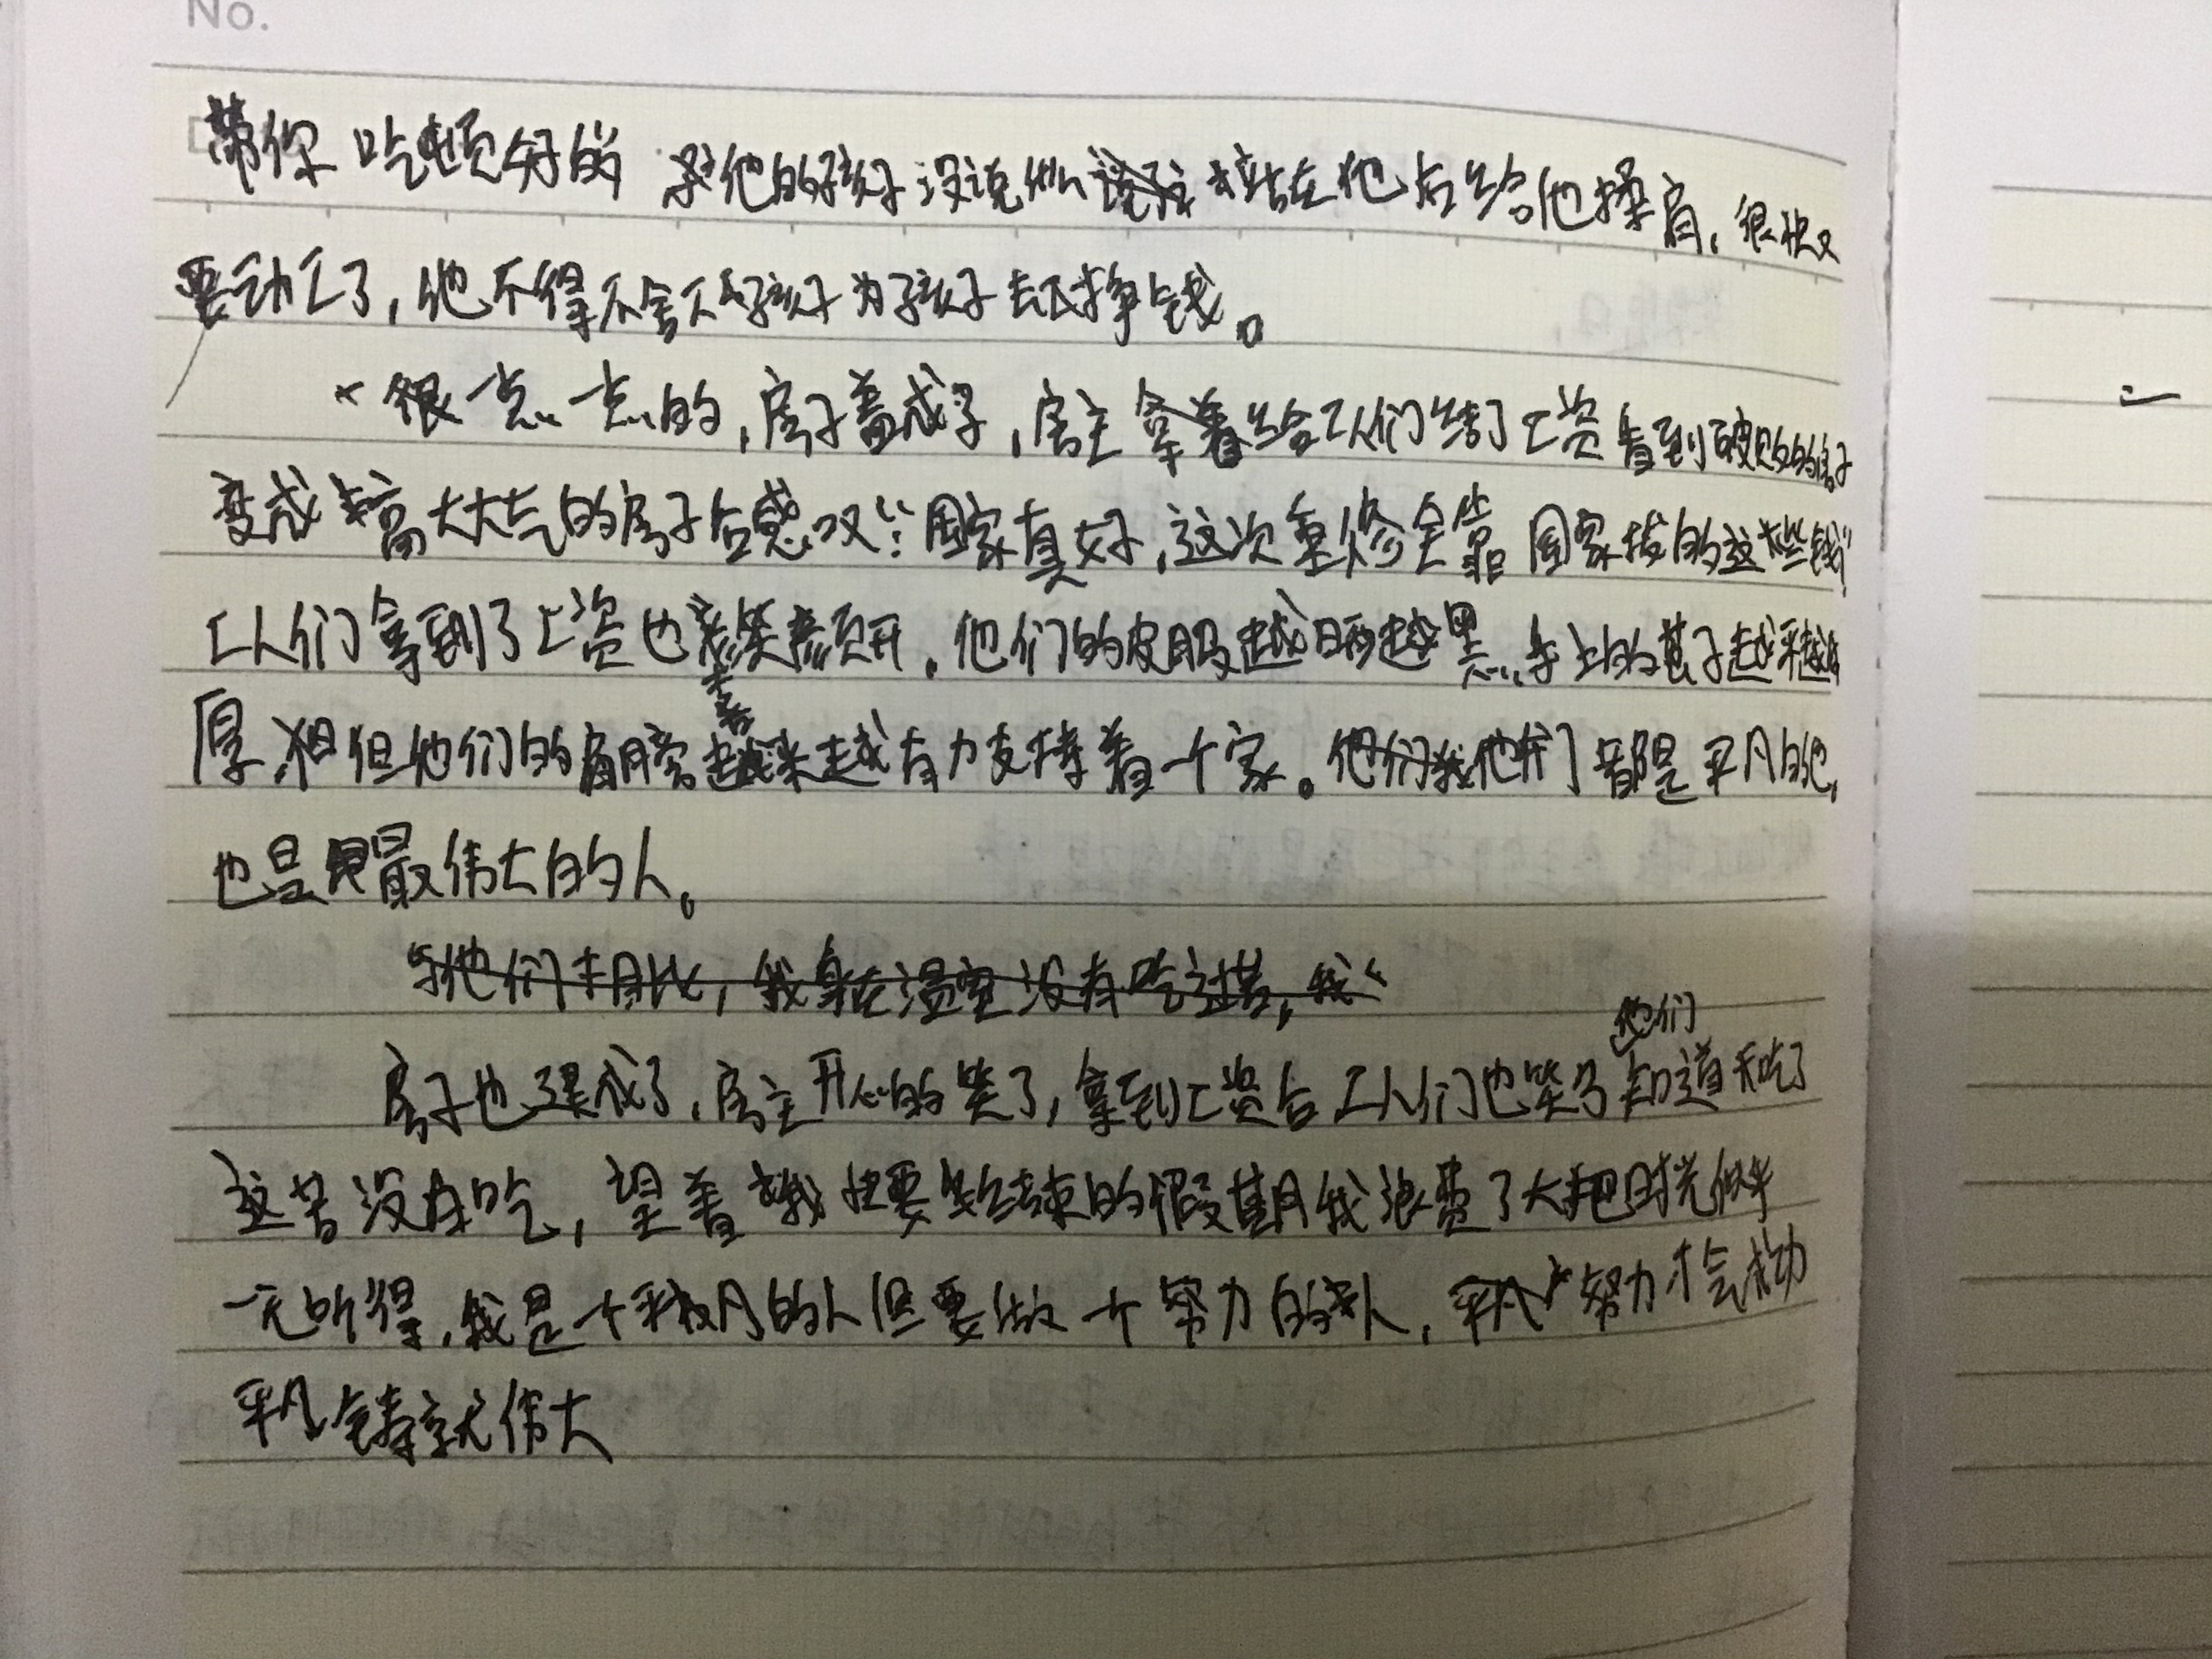 No.
带你吃顿好的 他的孩子没说什么 站在他后给他揉肩，很快又
要动工了，他不得不舍下孩子为孩子去挣钱。
一点一点的，房子盖成了，房主拿着给工人们结了工资看到破败的房子
变成高大大气的房子后感叹：“国家真好，这次重修全靠国家拨的这些钱”
工人们拿到了工资也喜笑颜开，他们的皮肤越晒越黑，手上的茧子越来越
厚，但他们的肩膀越来越有力支持着一个家。他们都是平凡的，
也是最伟大的人。
与他们相比，我身在温室没有吃过苦，我
他们
房子也建成了，房主开心的笑了，拿到工资后工人们也笑了知道
这苦没白吃，望着快要结束的假期我浪费了大把时光似乎
一无所得，我是一个平凡的人但要做一个努力的人，努力才会
平凡铸就伟大